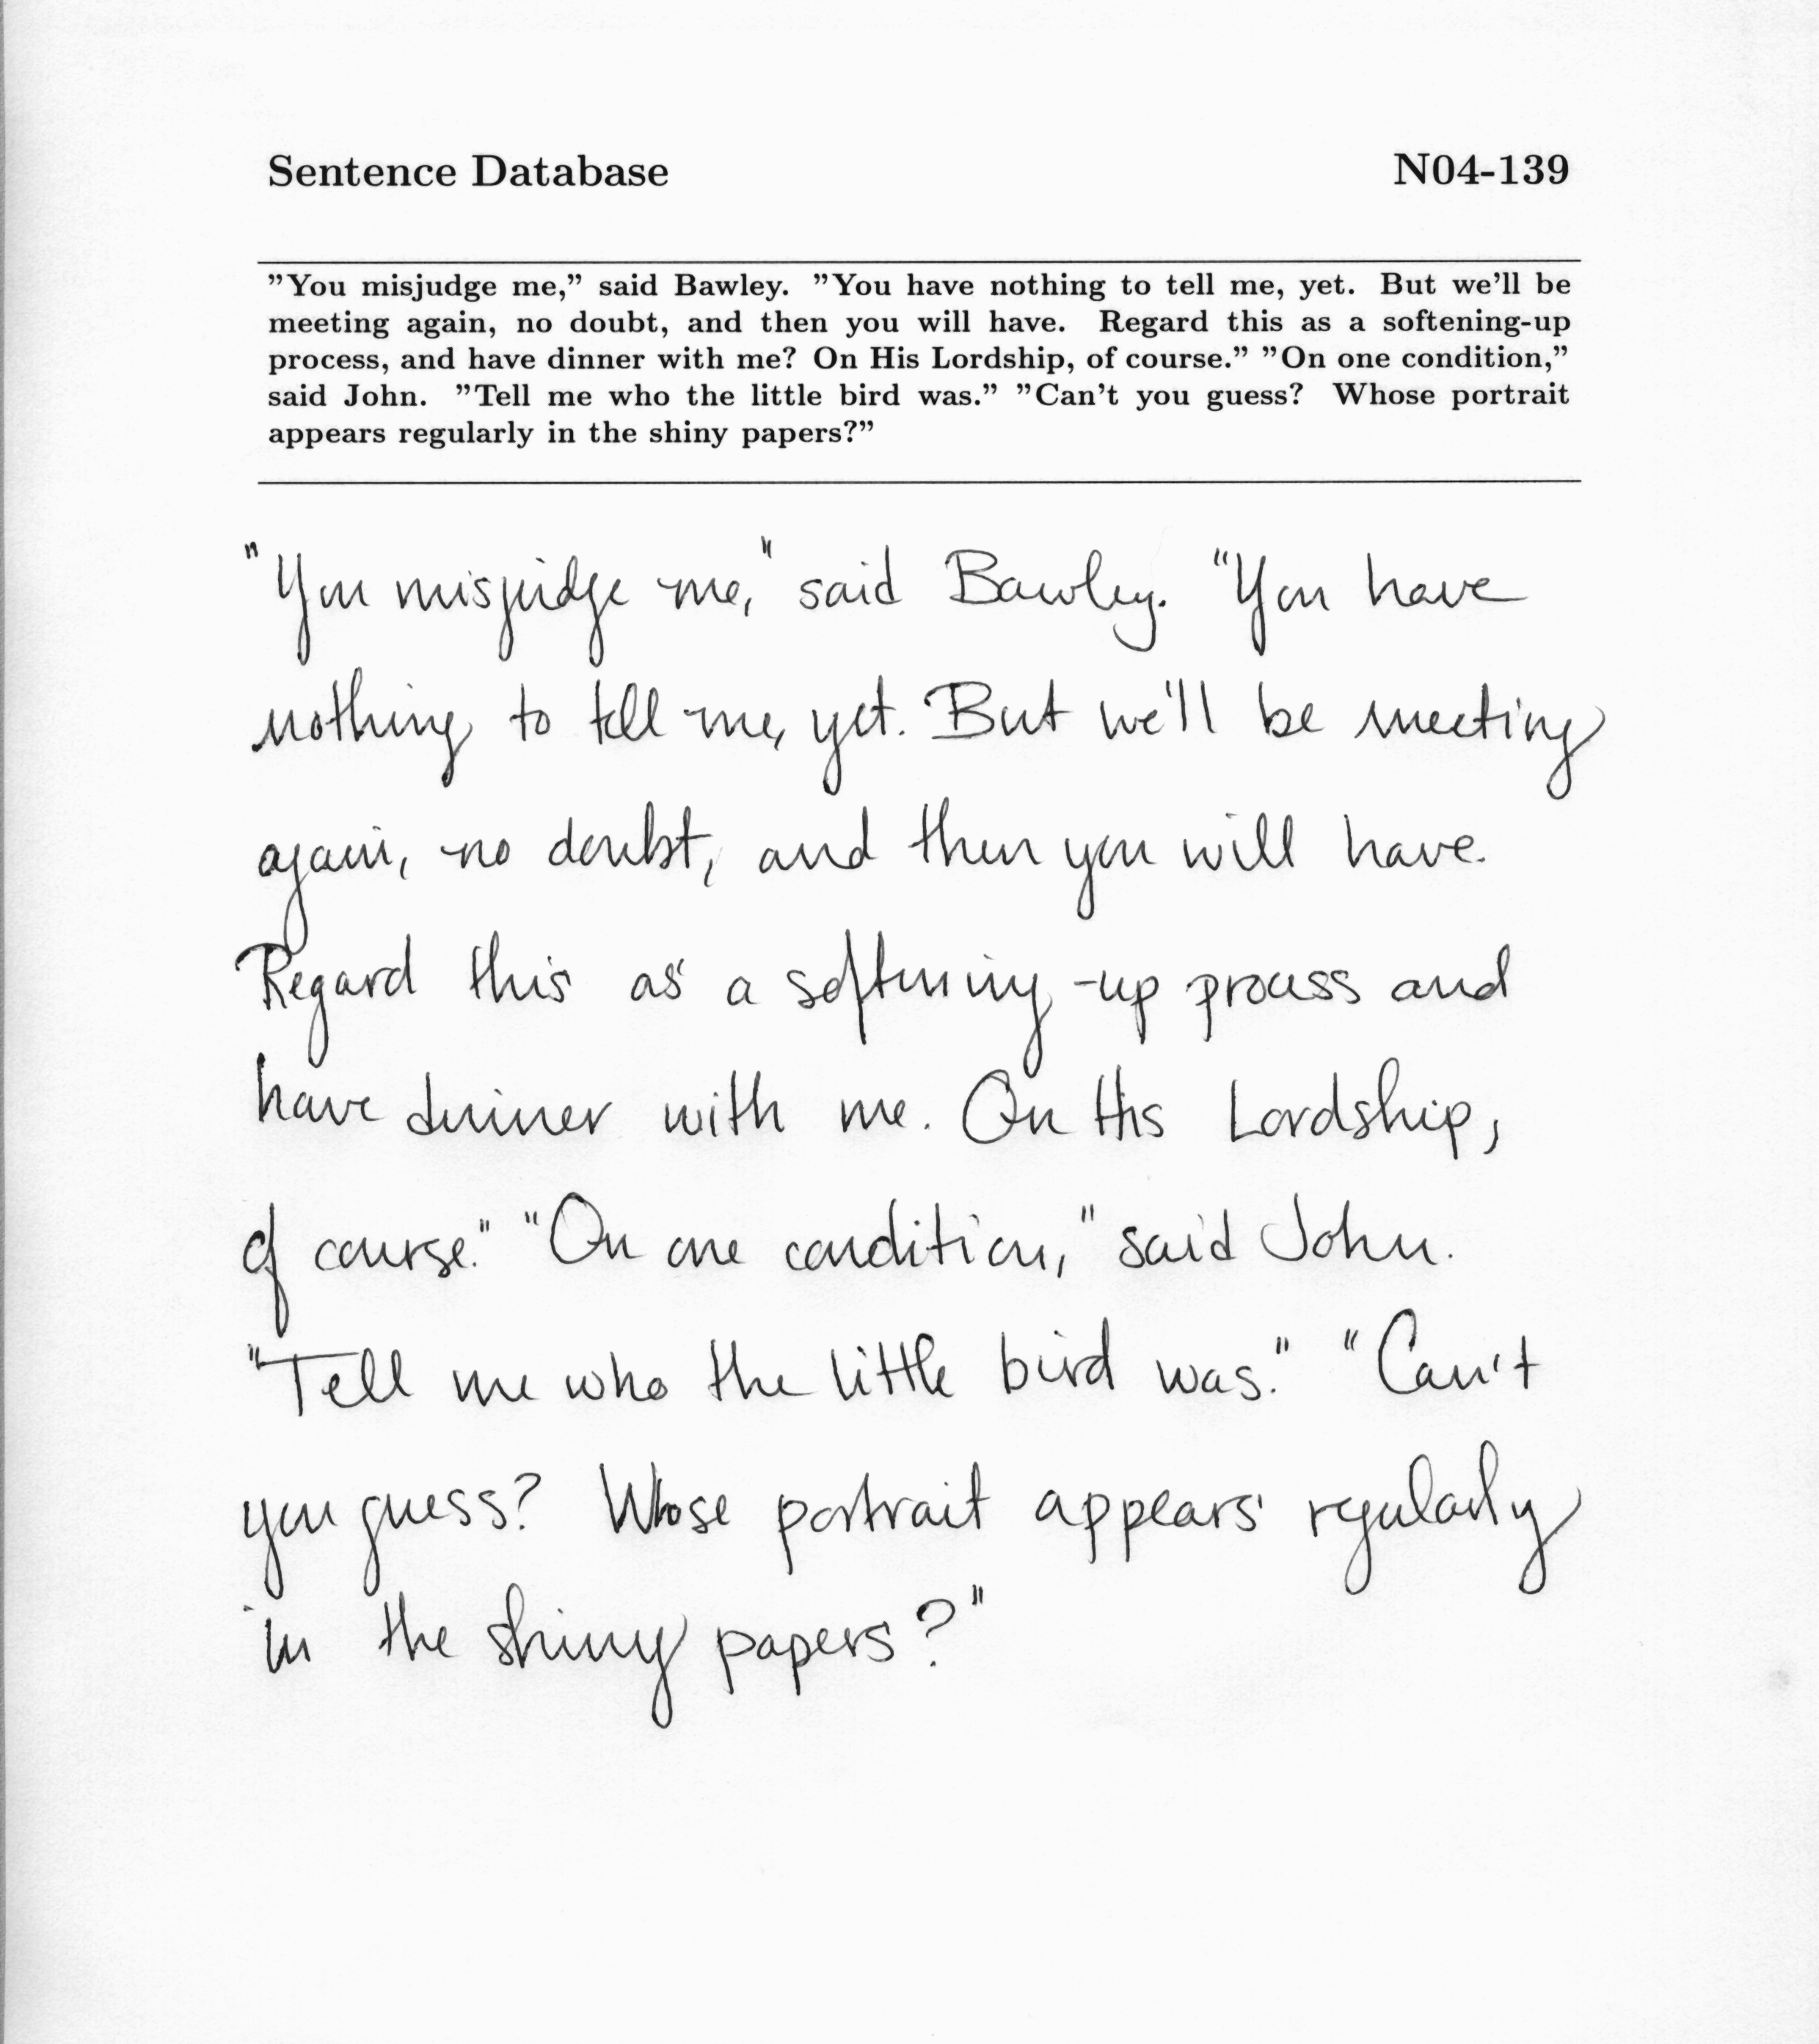 Sentence Database N04-139
”You misjudge me,” said Bawley. ”You have nothing to tell me, yet. But we’ll be
meeting again, no doubt, and then you will have. Regard this as a softening-up
process, and have dinner with me? On His Lordship, of course.” ”On one condition,”
said John. ”Tell me who the little bird was.” ”Can’t you guess? Whose portrait
appears regularly in the shiny papers?”
"You misjudge me," said Bawley. "You have
nothing to tell me, yet. But we'll be meeting
again, no doubt, and then you will have.
Regard this as a softening-up process and
have dinner with me. On His Lordship,
of course." "On one condition," said John.
"Tell me who the little bird was." "Can't
you guess? Whose portrait appears regularly
in the shiny papers?"